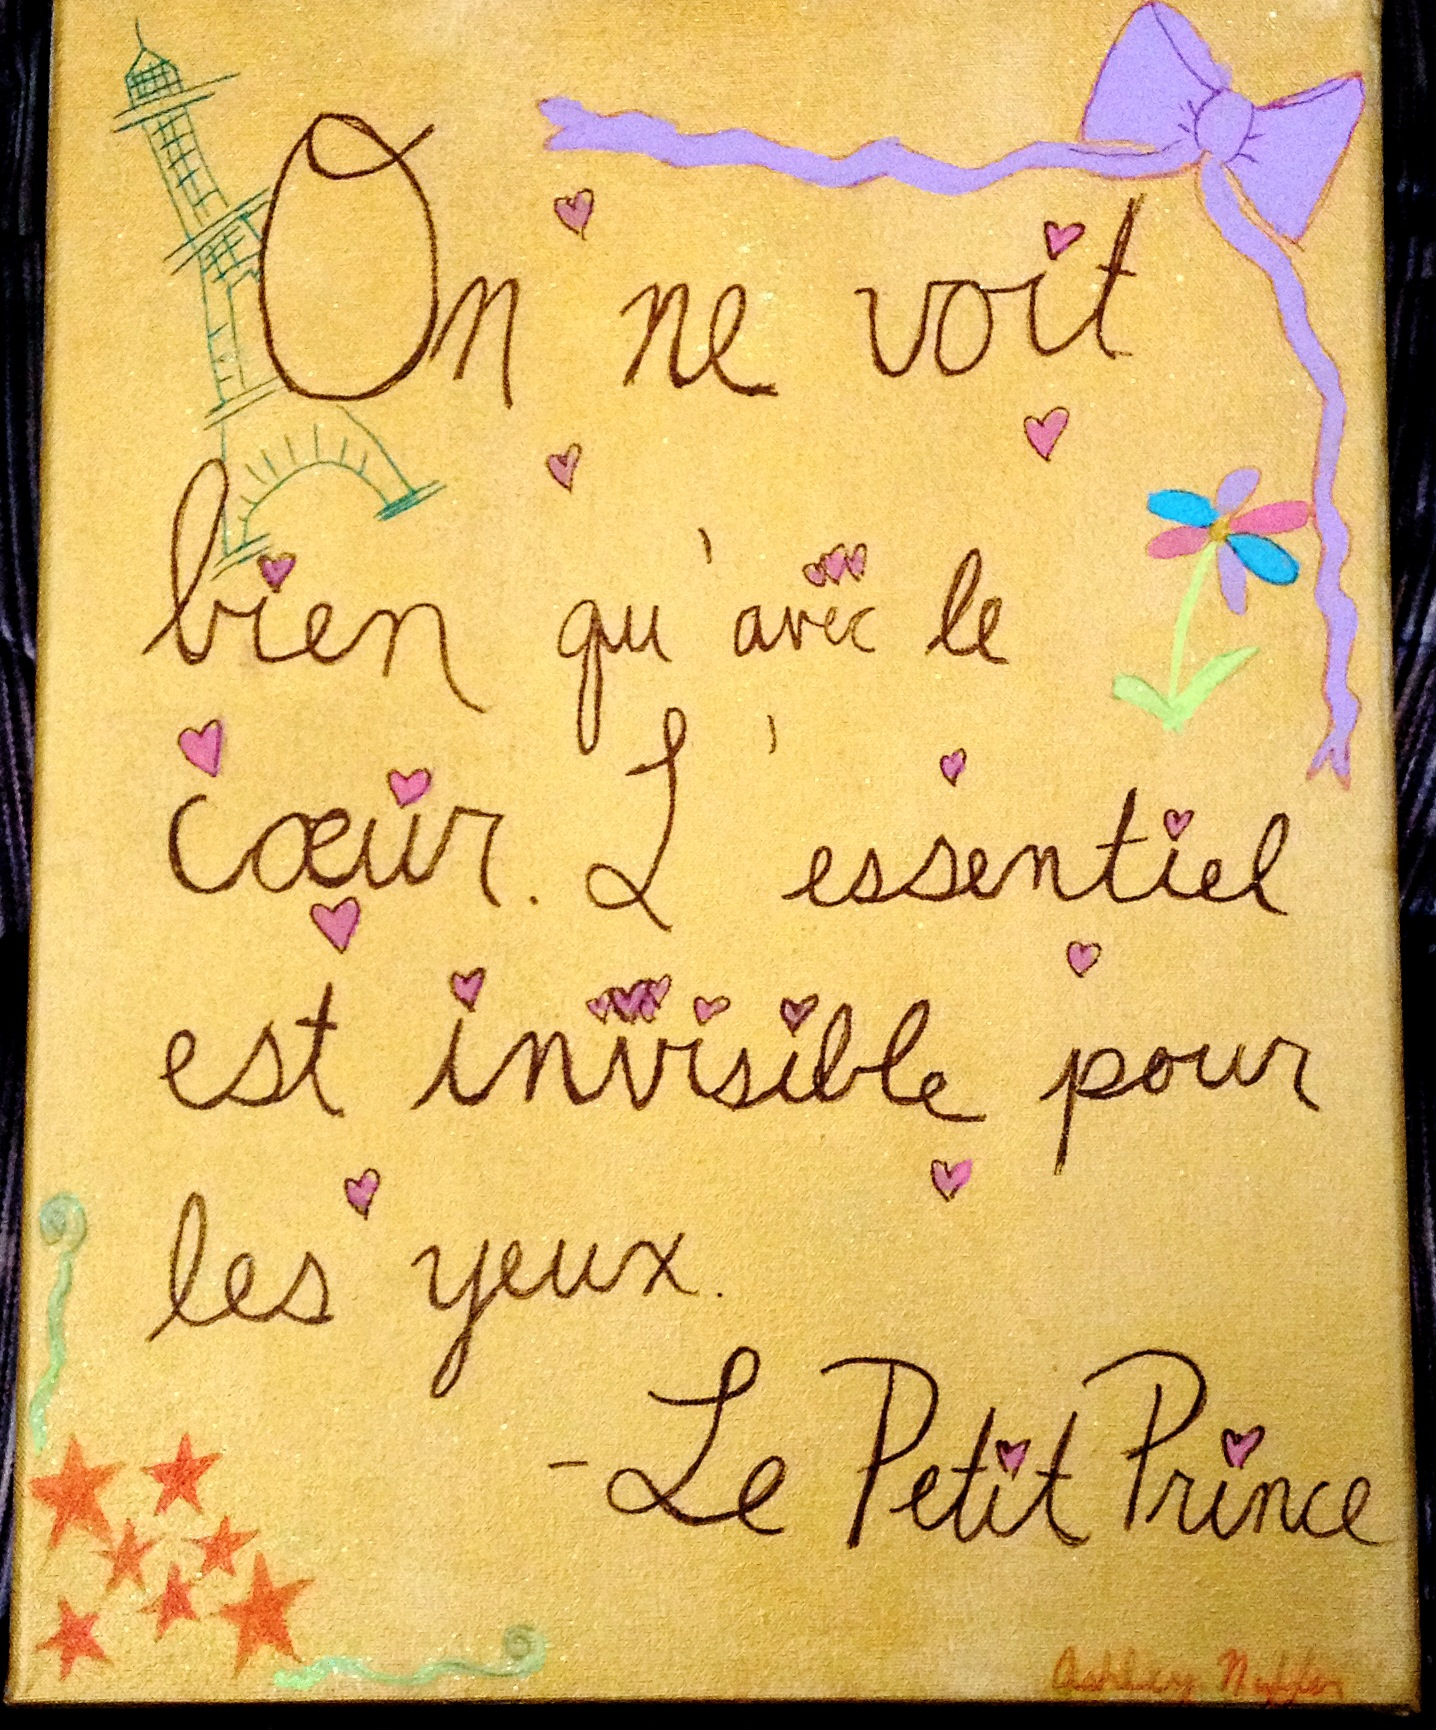 On ne voit
bien qu'avec le
cœur. L'essentiel
est invisible pour
les yeux.
-Le Petit Prince
Ashley